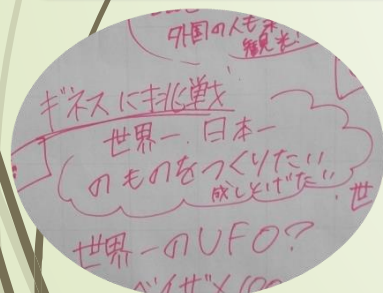 外国の人も
観光
ギネスに挑戦
世界一、日本一
のものをつくりたい
成しとげたい
世
世界一のUFO?